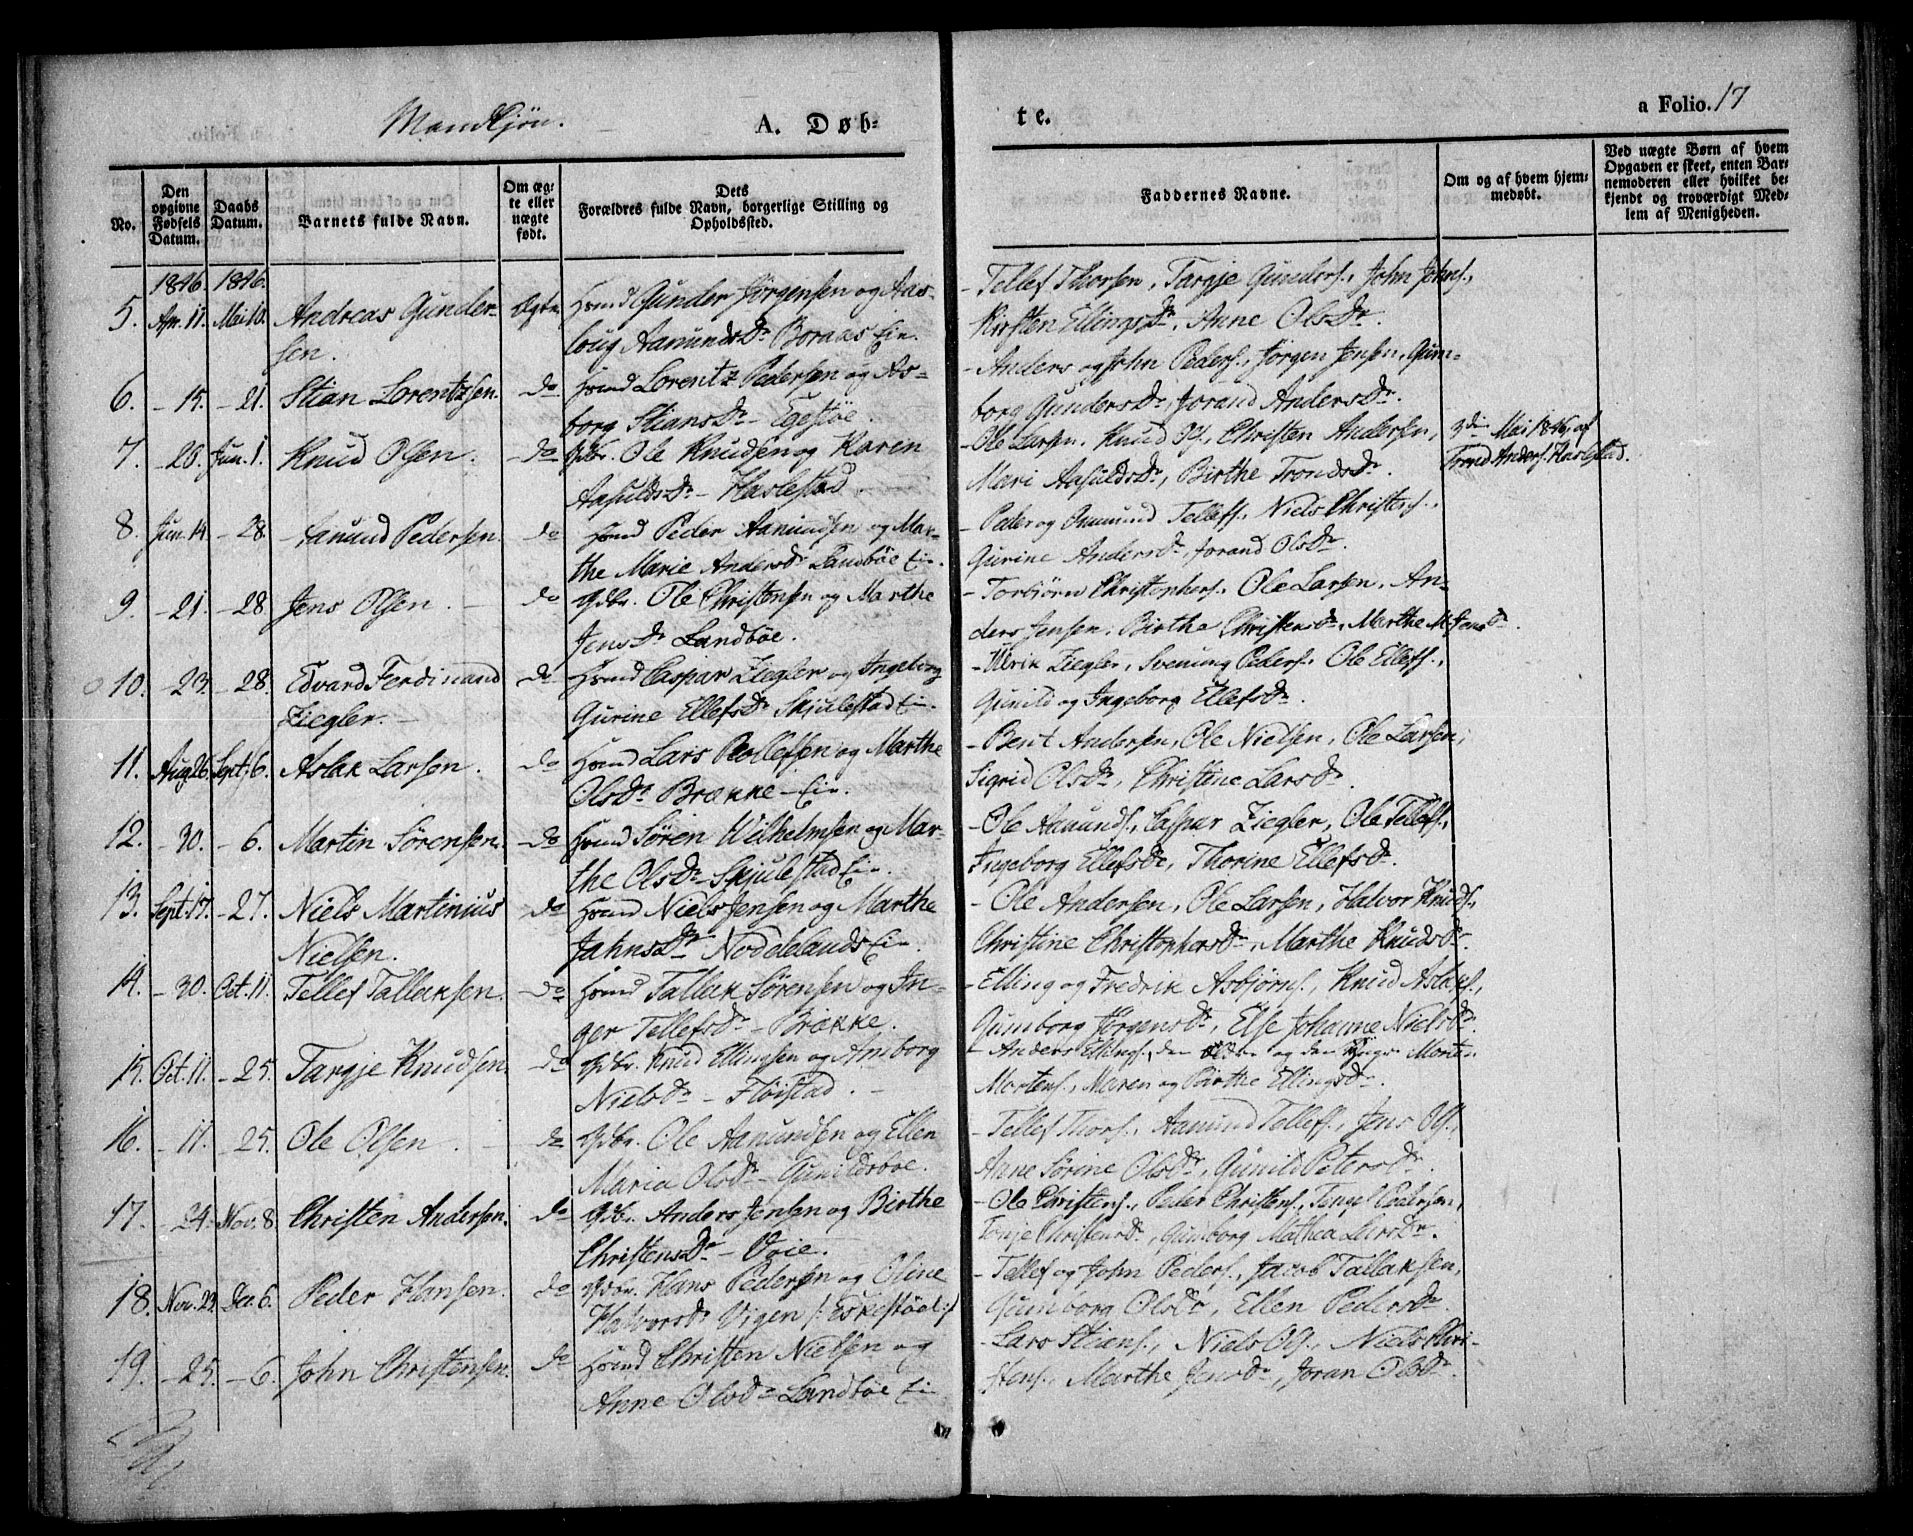 Mandkjøn.
A. Døb-
te.
a Folio. 17
No.
Den opgivne Fødsels Datum.
Daabs Datum.
Barnets fulde Navn.
Om ægte eller nægte født.
Dets
Forældres fulde Navn, borgerlige Stilling og
Opholdssted.
Faddernes Navne.
Om og af hvem hjem-
medøbt.
Ved nægte Børn af hvem
Opgaven er skeet, enten Bar-
nemoderen eller hvilket be-
kjendt og troværdigt Med-
lem af Menigheden.
1846 1846.
5. Apr. 11. Mai 10. Andreas Gunder-
sen.
Ægte
Hmd Gunder Jörgensen og Aas-
loug Aanunds Dr Boraas Ein.
- Tellef Thorsen, Targje Gunders., John Johns.,
Kirsten Ellings Dr, Anne Ols Dr.
6. - 15. - 21. Stian Lorentzsen. do
Hmd Lorentz Pedersen og As-
borg Stians Dr - Egestöe.
- Anders og John Peders., Jörgen Jensen, Gum-
borg Gunders Dr, Jorand Anders Dr.
7. - 26. Jun. 1. Knud Olsen. do
Gdbr. Ole Knudsen og Karen
Aasulds Dr - Haslestad.
- Ole Larsen, Knud Ols., Christen Andersen,
Mari Aasulds Dr, Birthe Tronds Dr.
3die Mai 1846 af
Trond Anders. Haslestad.
8. Jun. 14. - 28. Aanund Pedersen do
Hmd Peder Aanundsen og Mar-
the Marie Anders Dr Landböe Ein.
- Peder og Omund Tellefs., Niels Christens.,
Gurine Anders Dr, Jorand Ols Dr.
9. - 21. - 28 Jens Olsen. do
Gdbr. Ole Christensen og Marthe
Jens Dr Landböe.
- Torbjörn Christophers., Ole Larsen, An-
ders Jensen, Birthe Christens Dr, Marthe M. Jens Dr.
10. - 23. - 28. Edvard Ferdinand
Ziegler.
do
Hmd Caspar Ziegler og Ingeborg
Gurine Ellefs Dr Skjulestad Ein.
- Ulrik Ziegler, Svenung Peders., Ole Ellefs.,
Gunild og Ingeborg Ellefs Dr.
11. Aug. 26. Sept. 6. Aslak Larsen. do
Hmd Lars Rollefsen og Marthe
Ols Dr Brække - Ein.
- Bent Andersen, Ole Nielsen, Ole Larsen,
Sigrid Ols Dr, Christine Lars Dr.
12. - 30. - 6. Martin Sörensen. do
Hmd Sören Wilhelmsen og Mar-
the Ols Dr - Skjulestad Ein.
- Ole Aanunds., Caspar Ziegler, Ole Tellefs.,
Ingeborg Ellefs Dr, Thorine Ellefs Dr.
13. Sept. 17. - 27. Niels Martinius
Nielsen.
do
Hmd Niels Jensen og Marthe
Jahns Dr Noddelands Ein.
- Ole Andersen, Ole Larsen, Halvor Knuds.,
Christine Christophers Dr, Marthe Knuds Dr.
14. - 30. Oct. 11. Tellef Tallaksen. do
Hmd Tallak Sörensen og In-
ger Tellefs Dr - Brække.
- Elling og Fredrik Asbjörns., Knud Aslaks.,
Gumborg Jörgens Dr, Else Johanne Niels Dr.
15. Oct. 11. - 25. Targje Knudsen. do
Gdbr. Knud Ellingsen og Anborg
Niels Dr - Flöistad.
- Anders Ellings., den ældre og den Yngre Morten
Mortens., Maren og Birthe Ellings Dr.
16. - 11. - 25. Ole Olsen. do
Gdbr. Ole Aanundsen og Ellen
Maria Ols Dr - Gunildsboe.
- Tellef Thors., Aanund Tellefs., Jens Ols.,
Anne Sörine Ols Dr, Gunild Peters Dr.
17. - 24. Nov. 8. Christen Andersen. do
Gdbr. Anders Jensen og Birthe
Christens Dr - Voie.
- Ole Christens., Peder Christens., Tonjel Pedersen,
Tonje Christens Dr, Gumborg Mathea Lars Dr.
18. Nov. 23. Dec. 6. Peder Hansen. do
Gdbr. Hans Pedersen og Oline
Halvors Dr Vigen /: Eskestöel :/
- Tellef og John Peders., Jacob Tallaksen,
Gumborg Ols Dr, Ellen Peders Dr.
19. - 25. - 6. John Christensen. do
Hmd Christen Nielsen og
Anne Ols Dr Landböe Ein
- Lars Stians., Niels Ols., Niels Chri-
stens., Marthe Jens Dr, Joran Ols Dr.